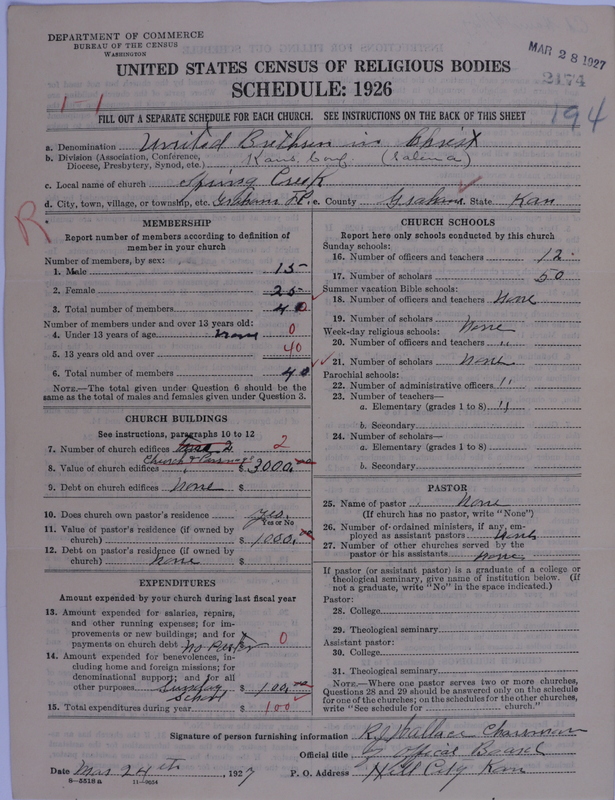 DEPARTMENT OF COMMERCE
BUREAU OF THE CENSUS
WASHINGTON
MAR 28 1927
2174
UNITED STATES CENSUS OF RELIGIOUS BODIES
SCHEDULE: 1926
1-1
194
FILL OUT A SEPARATE SCHEDULE FOR EACH CHURCH. SEE INSTRUCTIONS ON THE BACK OF THIS SHEET
a. Denomination United Brethren in Christ
b. Division (Association, Conference, Diocese, Presbytery, Synod, etc.) Kans. Conf. (Salena)
c. Local name of church Spring Creek
d. City, town, village, or township, etc. Graham TP, e. County Graham. State Kan
R
MEMBERSHIP
Report number of members according to definition of
member in your church
Number of members, by sex:
1. Male 15
2. Female 25
3. Total number of members 40
Number of members under and over 13 years old:
4. Under 13 years of age none 0
5. 13 years old and over 40
6. Total number of members 40
NOTE.—The total given under Question 6 should be
same as the total of males and females given under Question 3.
CHURCH BUILDINGS
See instructions, paragraphs 10 to 12
7. Number of church edifices 2 2
8. Value of church edifices Church & Parsonage $ 3000.00
9. Debt on church edifices None $
10. Does church own pastor's residence Yes.
Yes or No
11. Value of pastor's residence (if owned by
church) $ 1000.00
12. Debt on pastor's residence (if owned by
church) none $
EXPENDITURES
Amount expended by your church during last fiscal year
13. Amount expended for salaries, repairs,
and other running expenses; for im-
provements or new buildings; and for
payments on church debt no Pastor 0
14. Amount expended for benevolences, in-
cluding home and foreign missions; for
denominational support; and for all
other purposes Sunday School $ 100.00
15. Total expenditures during year $ 100
CHURCH SCHOOLS
Report here only schools conducted by this church
Sunday schools:
16. Number of officers and teachers 12
17. Number of scholars 50
Summer vacation Bible schools:
18. Number of officers and teachers None
19. Number of scholars None
Week-day religious schools:
20. Number of officers and teachers "
21. Number of scholars None
Parochial schools:
22. Number of administrative officers "
23. Number of teachers—
a. Elementary (grades 1 to 8) "
b. Secondary
24. Number of scholars—
a. Elementary (grades 1 to 8)
b. Secondary
PASTOR
25. Name of pastor None
(If church has no pastor, write "None")
26. Number of ordained ministers, if any, em-
ployed as assistant pastors None
27. Number of other churches served by the
pastor or his assistants None
If pastor (or assistant pastor) is a graduate of a college or
theological seminary, give name of institution below. (If
not a graduate, write "No" in the space indicated.)
Pastor:
28. College
29. Theological seminary
Assistant pastor:
30. College
31. Theological seminary
NOTE.—Where one pastor serves two or more churches,
Questions 28 and 29 should be answered only on the schedule
for one of the churches; on the schedules for the other churches,
write "See schedule for church."
Signature of person furnishing information R J Wallace Chairman
Official title of Offical Board
Date Mar 24th, 1927 P. O. Address Hill City Kan
8—5518 a 11—9654